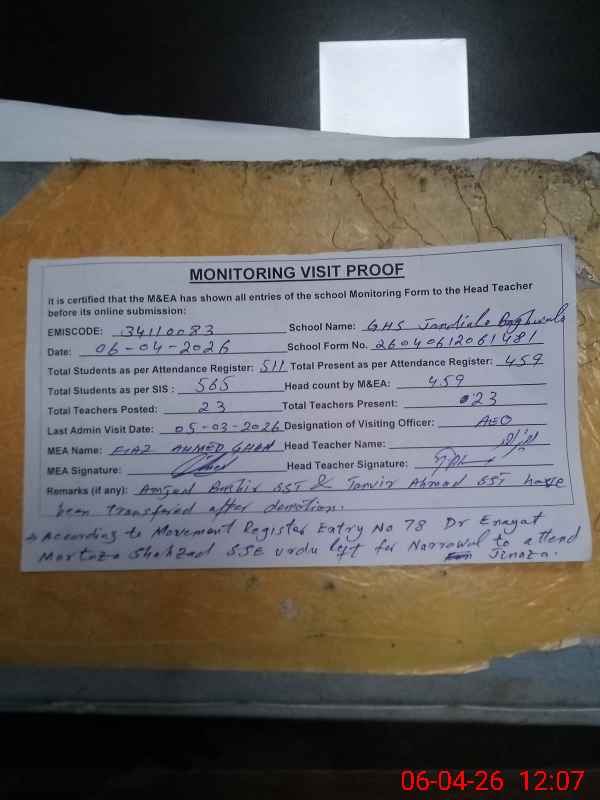 MONITORING VISIT PROOF
it is certified that the M&EA has shown all entries of the school Monitoring Form to the Head Teacher
before its online submission:
EMISCODE: 34110083 School Name: GHS Jandiala Baghwala
Date: 06-04-2026 School Form No. 26040612061481
Total Students as per Attendance Register: 511 Total Present as per Attendance Register: 459
Total Students as per SIS : 565 Head count by M&EA: 459
Total Teachers Posted: 23 Total Teachers Present: 23
Last Admin Visit Date: 05-03-2026 Designation of Visiting Officer: AEO
MEA Name: AHMED Head Teacher Name:
MEA Signature: Head Teacher Signature:
Remarks (if any): Amjad Bashir SST & Tanvir Ahmad SST have
been transfered after donation.
→ According to Movement Register Entry No 78 Dr Enayat
Mortaza Shahzad SSE urdu left for Narrowal to attend
Jinaza.
06-04-26 12:07